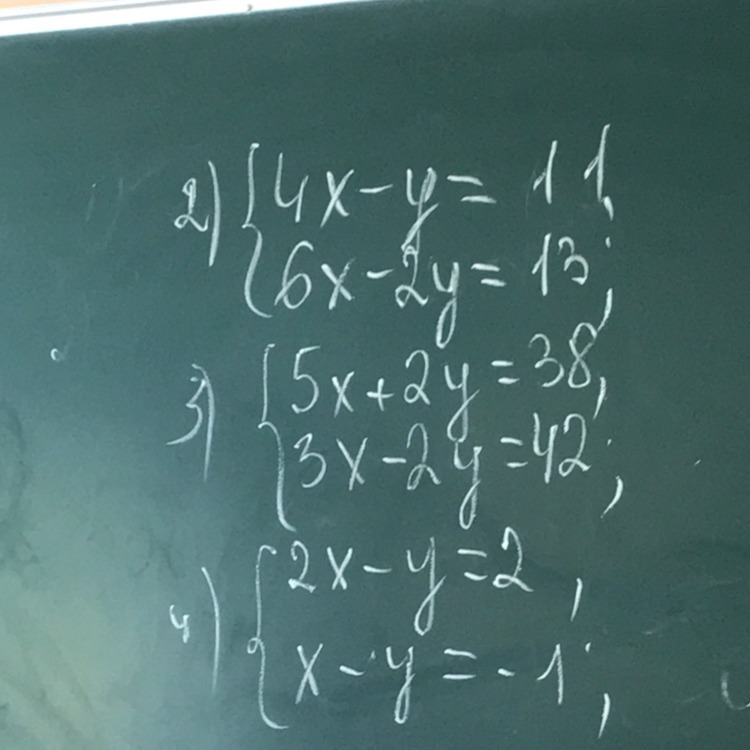 2) { 4x - y = 11,
6x - 2y = 13;
3) { 5x + 2y = 38,
3x - 2y = 42;
4) { 2x - y = 2,
x - y = -1;